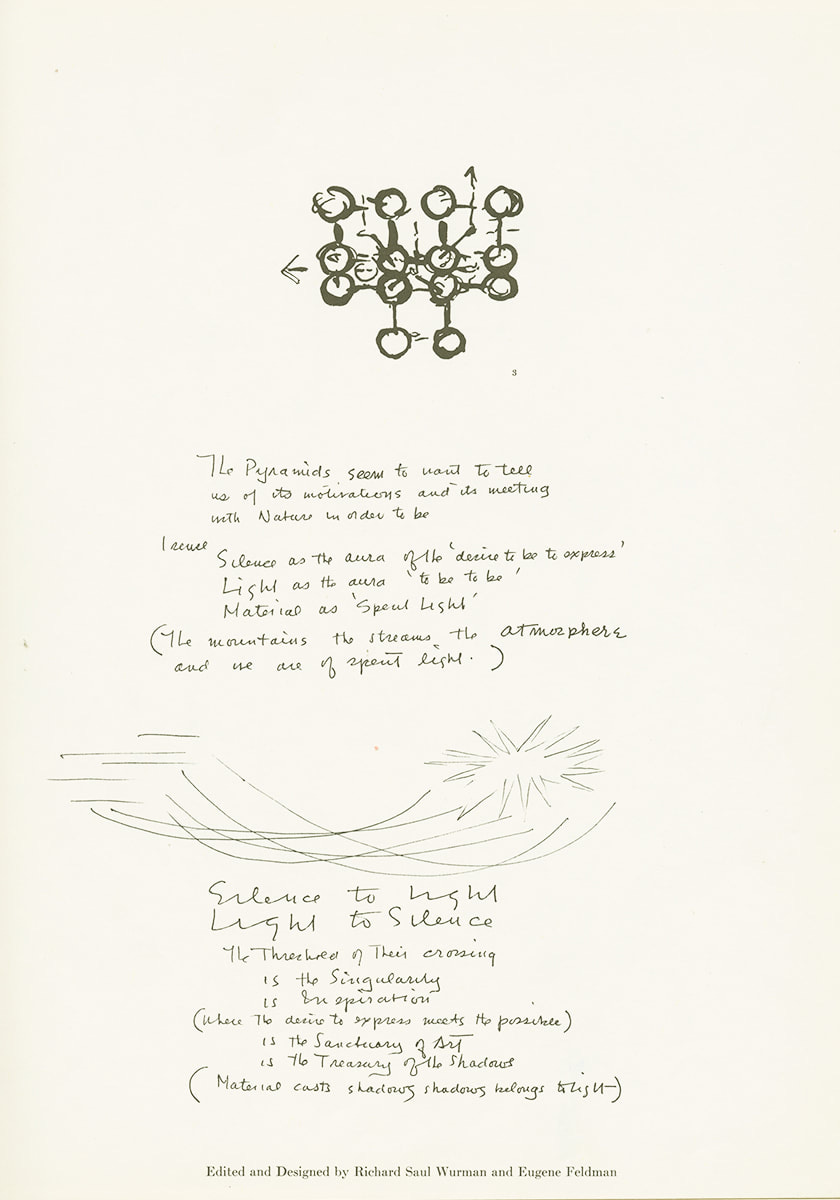 3
The Pyramids seem to want to tell
us of its motivations and its meeting
with Nature in order to be
I sense
Silence as the aura of the 'desire to be to express'
Light as the aura 'to be to be'
Material as 'Spent Light'
(The mountains the streams the atmosphere
and we are of spent light.)
Silence to Light
Light to Silence
The Threshold of Their crossing
is the Singularity
is Inspiration
(Where the desire to express meets the possible)
is the Sanctuary of Art
is the Treasury of the Shadows
(Material casts shadows shadows belongs to light)
Edited and Designed by Richard Saul Wurman and Eugene Feldman